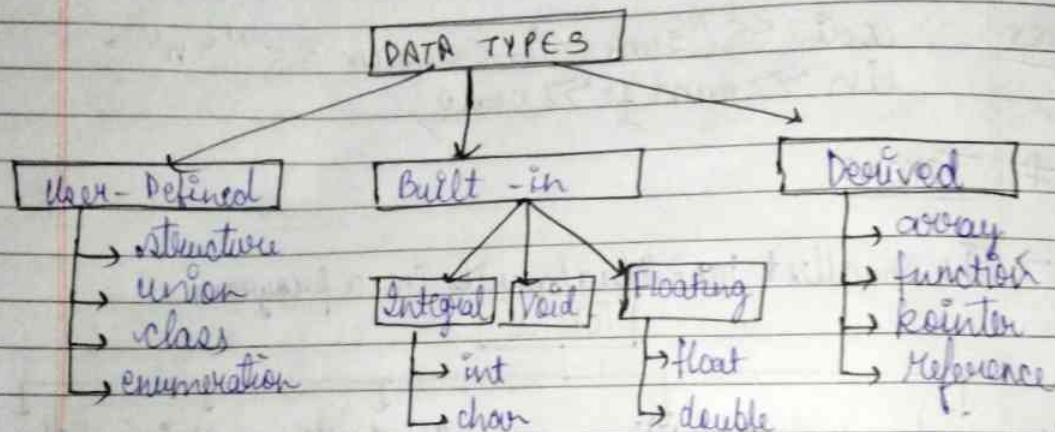 DATA TYPES
User-Defined
structure
union
class
enumeration
Built-in
Integral
int
char
Void
Floating
float
double
Derived
array
function
pointer
reference